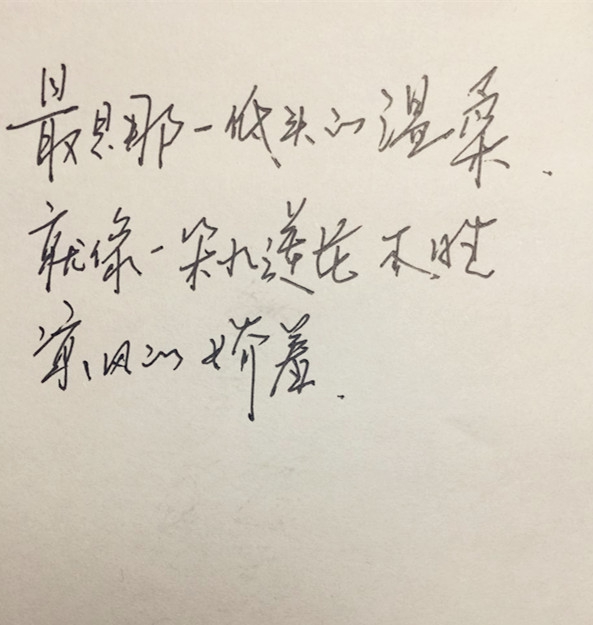 最是那一低头的温柔.
就像一朵水莲花 不胜
凉风的娇羞.